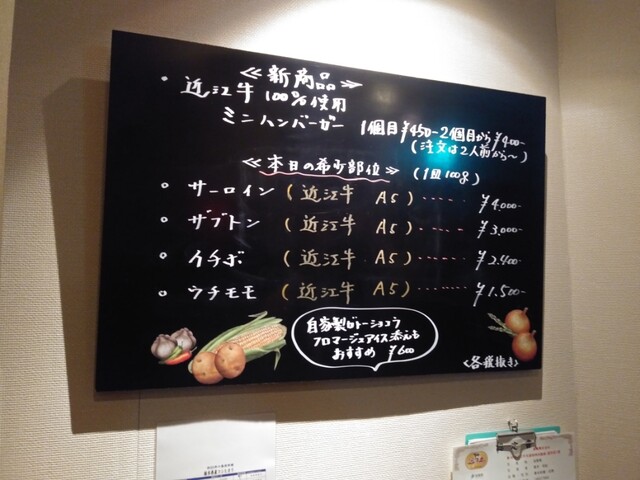 ≪新商品≫
・近江牛100%使用
ミニハンバーガー 1個目¥450-2個目から¥400-
(注文は2人前から~)
≪本日の希少部位≫ (1皿100g)
・サーロイン (近江牛 A5)‥‥‥ ¥4,000-
・ザブトン (近江牛 A5)‥‥‥ ¥3,000-
・イチボ (近江牛 A5)‥‥‥ ¥2.400-
・ウチモモ (近江牛 A5)‥‥‥ ¥1.500-
自家製ガトーショコラ
フロマージュアイス添えも
おすすめ ¥600
<各税抜き>